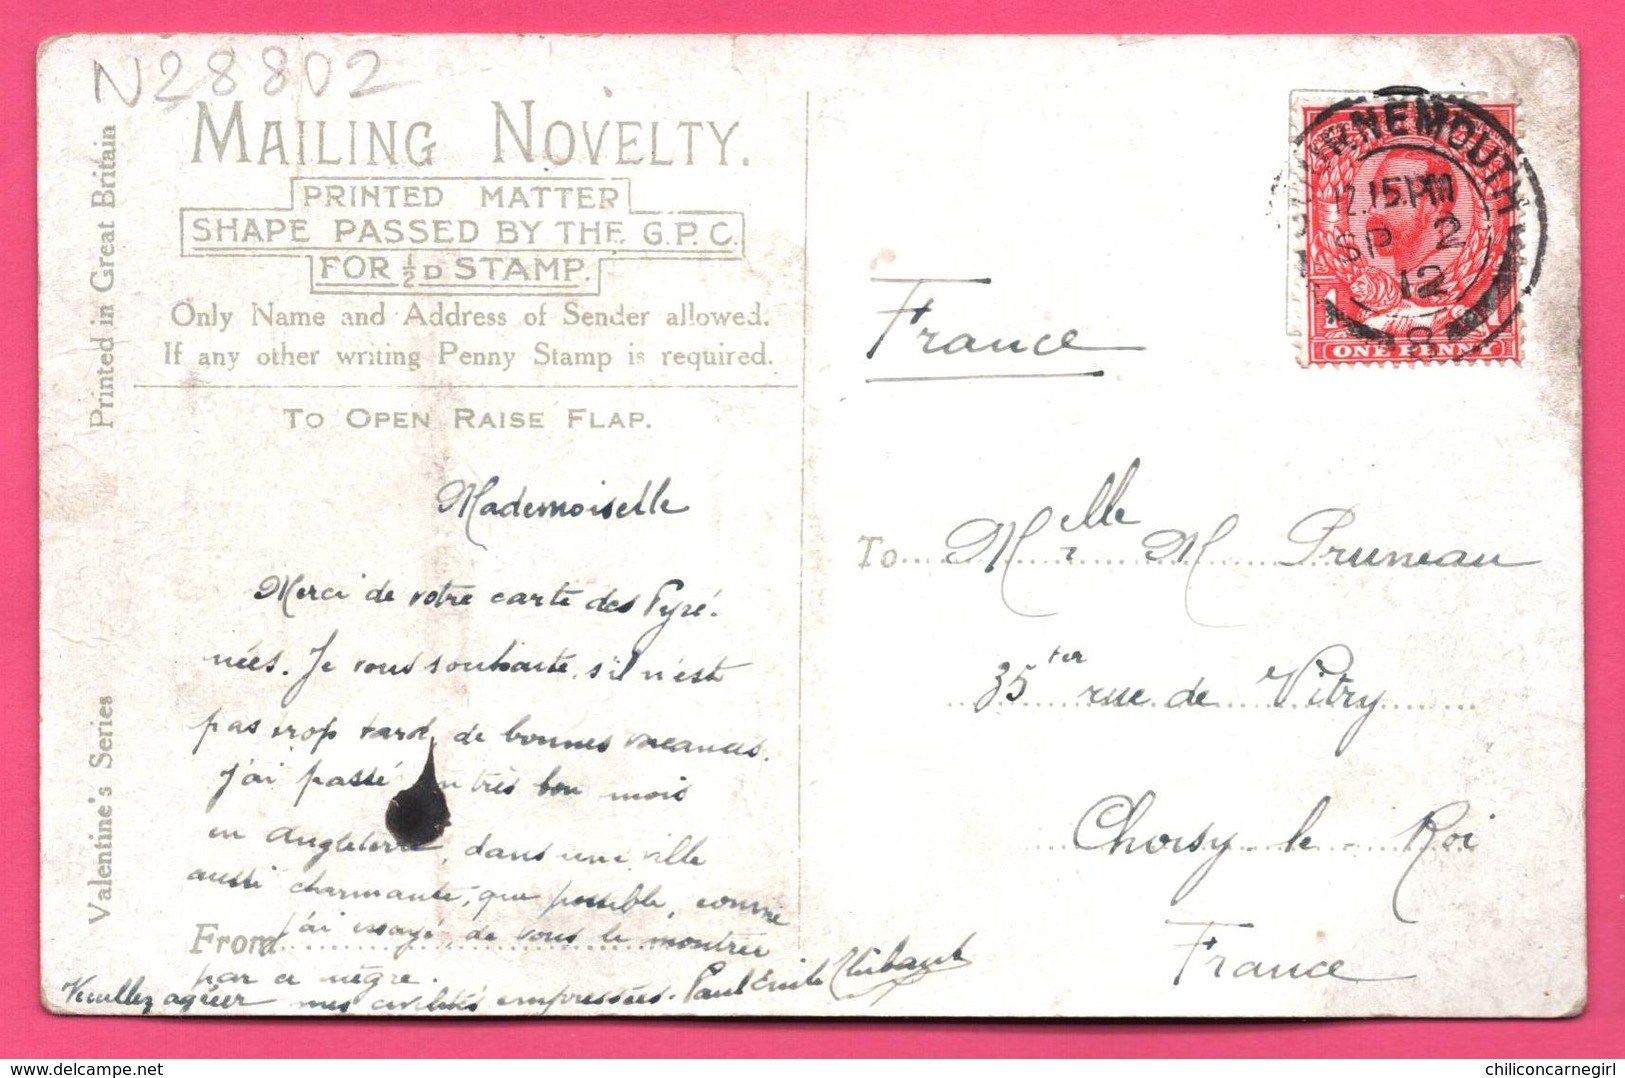 N28802
MAILING NOVELTY.
PRINTED MATTER
SHAPE PASSED BY THE G.P.C.
FOR ½D STAMP.
Only Name and Address of Sender allowed.
If any other writing Penny Stamp is required.
TO OPEN RAISE FLAP.
Printed in Great Britain
Valentine's Series
Mademoiselle
Merci de votre carte des Pyré-
nées. Je vous souhaite, s'il n'est
pas trop tard, de bonnes vacances.
J'ai passé un très bon mois
en Angleterre, dans une ville
aussi charmante, que possible, comme
j'ai essayé, de vous le montrer
par ce nègre.
From
Veuillez agréer mes civilités empressées. Paul Emile Thibaut
BOURNEMOUTH
12.15 PM
SP 2
12
8
ONE PENNY
France
To Melle M Pruneau
35 ter rue de Vitry
Choisy-le-Roi
France
chiliconcarnegirl